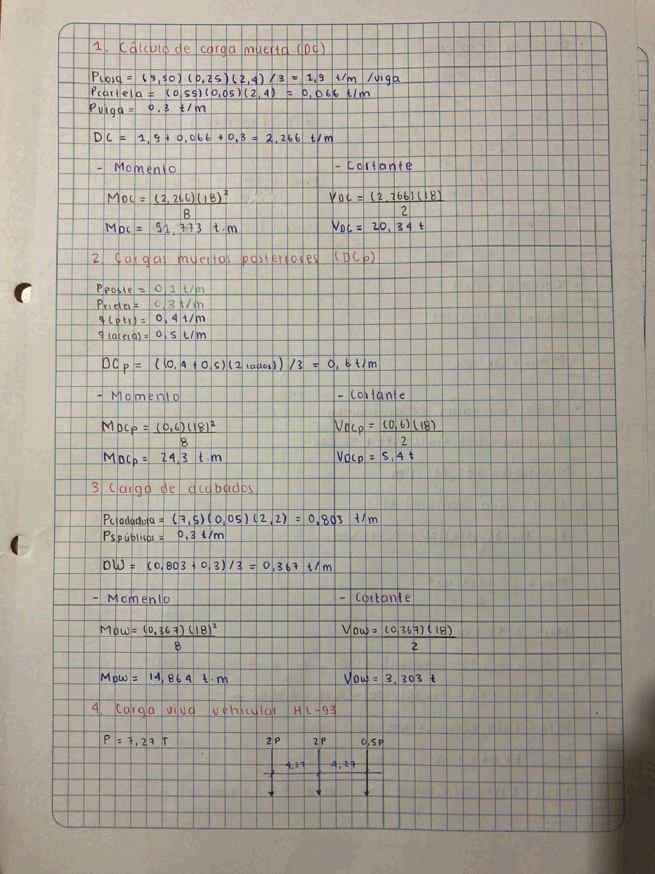 1. Cálculo de carga muerta (DC)
Plosa = (9,50)(0,25)(2,4)/3 = 1,9 t/m /viga
Pcartela = (0,55)(0,05)(2,4) = 0,066 t/m
Pviga = 0,3 t/m
DC = 1,9 + 0,066 + 0,3 = 2,266 t/m
- Momento - Cortante
MDC = (2,266)(18)² / 8 VDC = (2,266)(18) / 2
MDC = 91,773 t.m VDC = 20,34 t
2. Cargas muertas posteriores (DCp)
Pposte = 0,1 t/m
Prieles = 0,3 t/m
q(ptr) = 0,4 t/m
q(acera) = 0,5 t/m
DCp = ((0,4 + 0,5)(2 lados))/3 = 0,6 t/m
- Momento - Cortante
MDCp = (0,6)(18)² / 8 VDCp = (0,6)(18) / 2
MDCp = 24,3 t.m VDCp = 5,4 t
3 Carga de acabados
Prodadura = (7,5)(0,05)(2,2) = 0,803 t/m
Pspúblicos = 0,3 t/m
DW = (0,803 + 0,3)/3 = 0,367 t/m
- Momento - Cortante
MDW = (0,367)(18)² / 8 VDW = (0,367)(18) / 2
MDW = 14,864 t.m VDW = 3,303 t
4. Carga viva vehicular HL-93
P = 7,27 T 2P 2P 0,5P
4,27 4,27